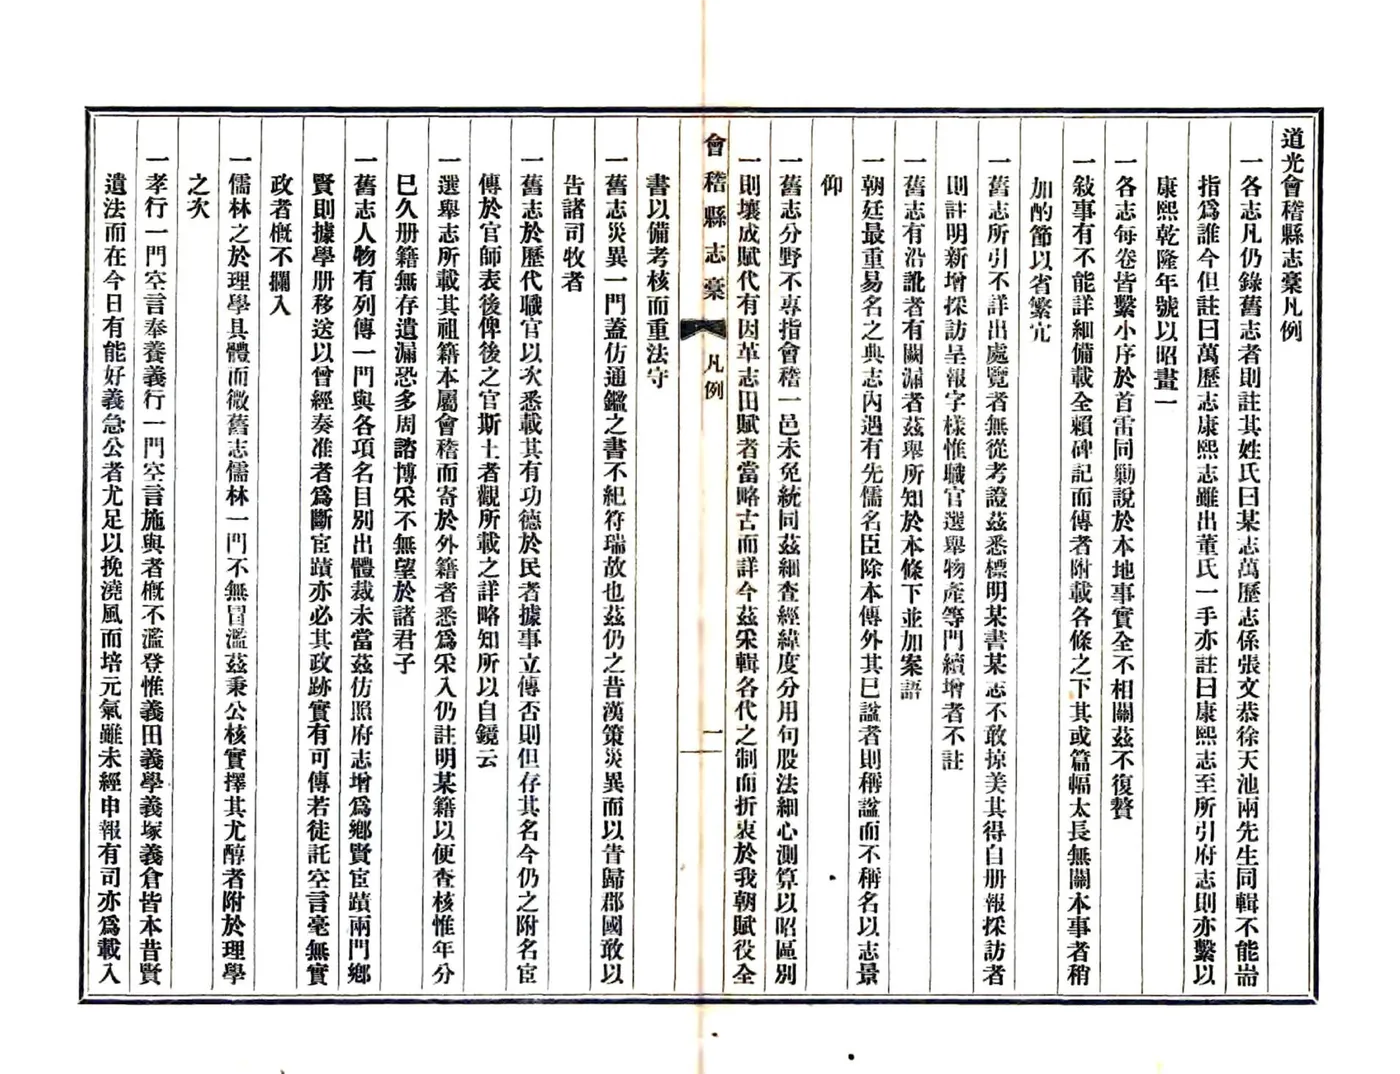 道光會稽縣志稾凡例
一各志凡仍錄舊志者則註其姓氏曰某志萬歷志係張文恭徐天池兩先生同輯不能耑
指爲誰今但註曰萬歷志康熙志雖出董氏一手亦註曰康熙志至所引府志則亦繫以
康熙乾隆年號以昭畫一
一各志每卷皆繫小序於首雷同勦說於本地事實全不相關茲不復贅
一敍事有不能詳細備載全賴碑記而傳者附載各條之下其或篇幅太長無關本事者稍
加酌節以省繁宂
一舊志所引不詳出處覽者無從考證茲悉標明某書某志不敢掠美其得自册報採訪者
則註明新增採訪呈報字樣惟職官選舉物產等門續增者不註
一舊志有沿訛者有闕漏者茲舉所知於本條下並加案語
一朝廷最重易名之典志內遇有先儒名臣除本傳外其已諡者則稱諡而不稱名以志景
仰
一舊志分野不專指會稽一邑未免統同茲細查經緯度分用句股法細心測算以昭區別
一則壤成賦代有因革志田賦者當略古而詳今茲采輯各代之制而折衷於我朝賦役全
會稽縣志稾 凡例 一
書以備考核而重法守
一舊志災異一門蓋仿通鑑之書不紀符瑞故也茲仍之昔漢策災異而以眚歸郡國敢以
告諸司牧者
一舊志於歷代職官以次悉載其有功德於民者據事立傳否則但存其名今仍之附名宦
傳於官師表後俾後之官斯土者觀所載之詳略知所以自鏡云
一選舉志所載其祖籍本屬會稽而寄於外籍者悉爲采入仍註明某籍以便查核惟年分
已久册籍無存遺漏恐多周諮博采不無望於諸君子
一舊志人物有列傳一門與各項名目別出體裁未當茲仿照府志增爲鄉賢宦蹟兩門鄉
賢則據學册移送以曾經奏准者爲斷宦蹟亦必其政跡實有可傳若徒託空言毫無實
政者概不攔入
一儒林之於理學具體而微舊志儒林一門不無冒濫茲秉公核實擇其尤醇者附於理學
之次
一孝行一門空言奉養義行一門空言施與者概不濫登惟義田義學義塚義倉皆本昔賢
遺法而在今日有能好義急公者尤足以挽澆風而培元氣雖未經申報有司亦爲載入